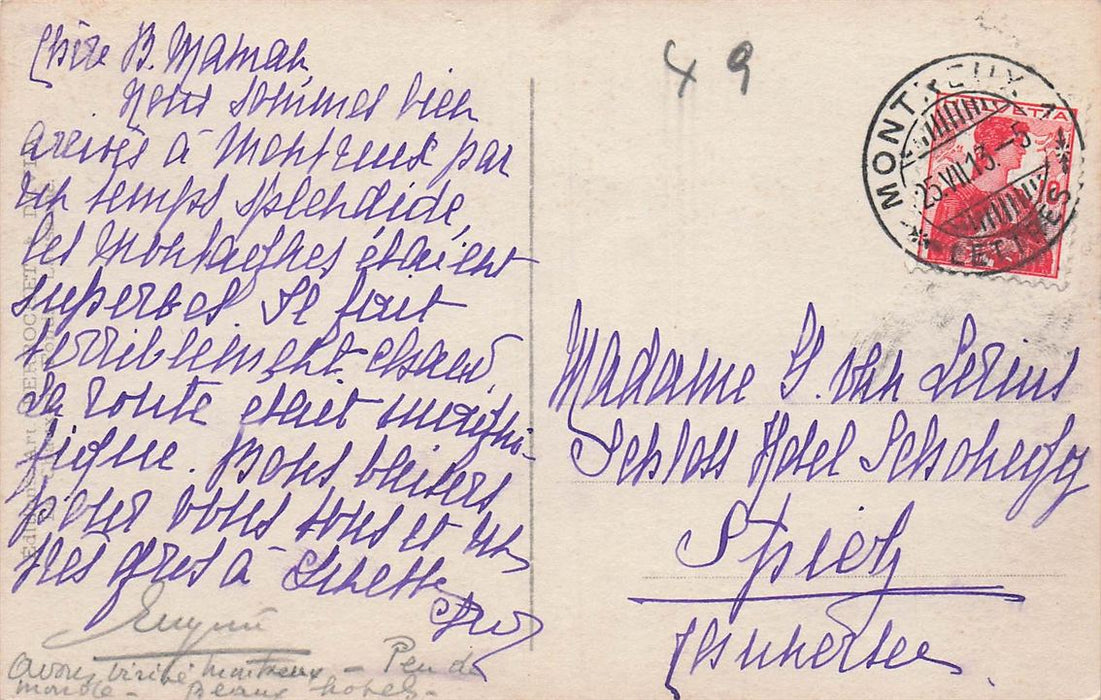 Chère B. Maman,
Nous sommes bien
arrivés à Montreux par
un temps splendide,
les montagnes étaient
superbes Il fait
terriblement chaud.
La route était magni-
fique. Bons baisers
pour vous tous et un
très gros à
Eugénie
avons visité Montreux - Peu de
monde - Beaux hotels -
49
MONTREUX 1
LETTRES
25.VII.13-5
HELVETIA
10
Madame J. van Lerius
Schloss Hotel Schonegg
Spiez
Thunersee